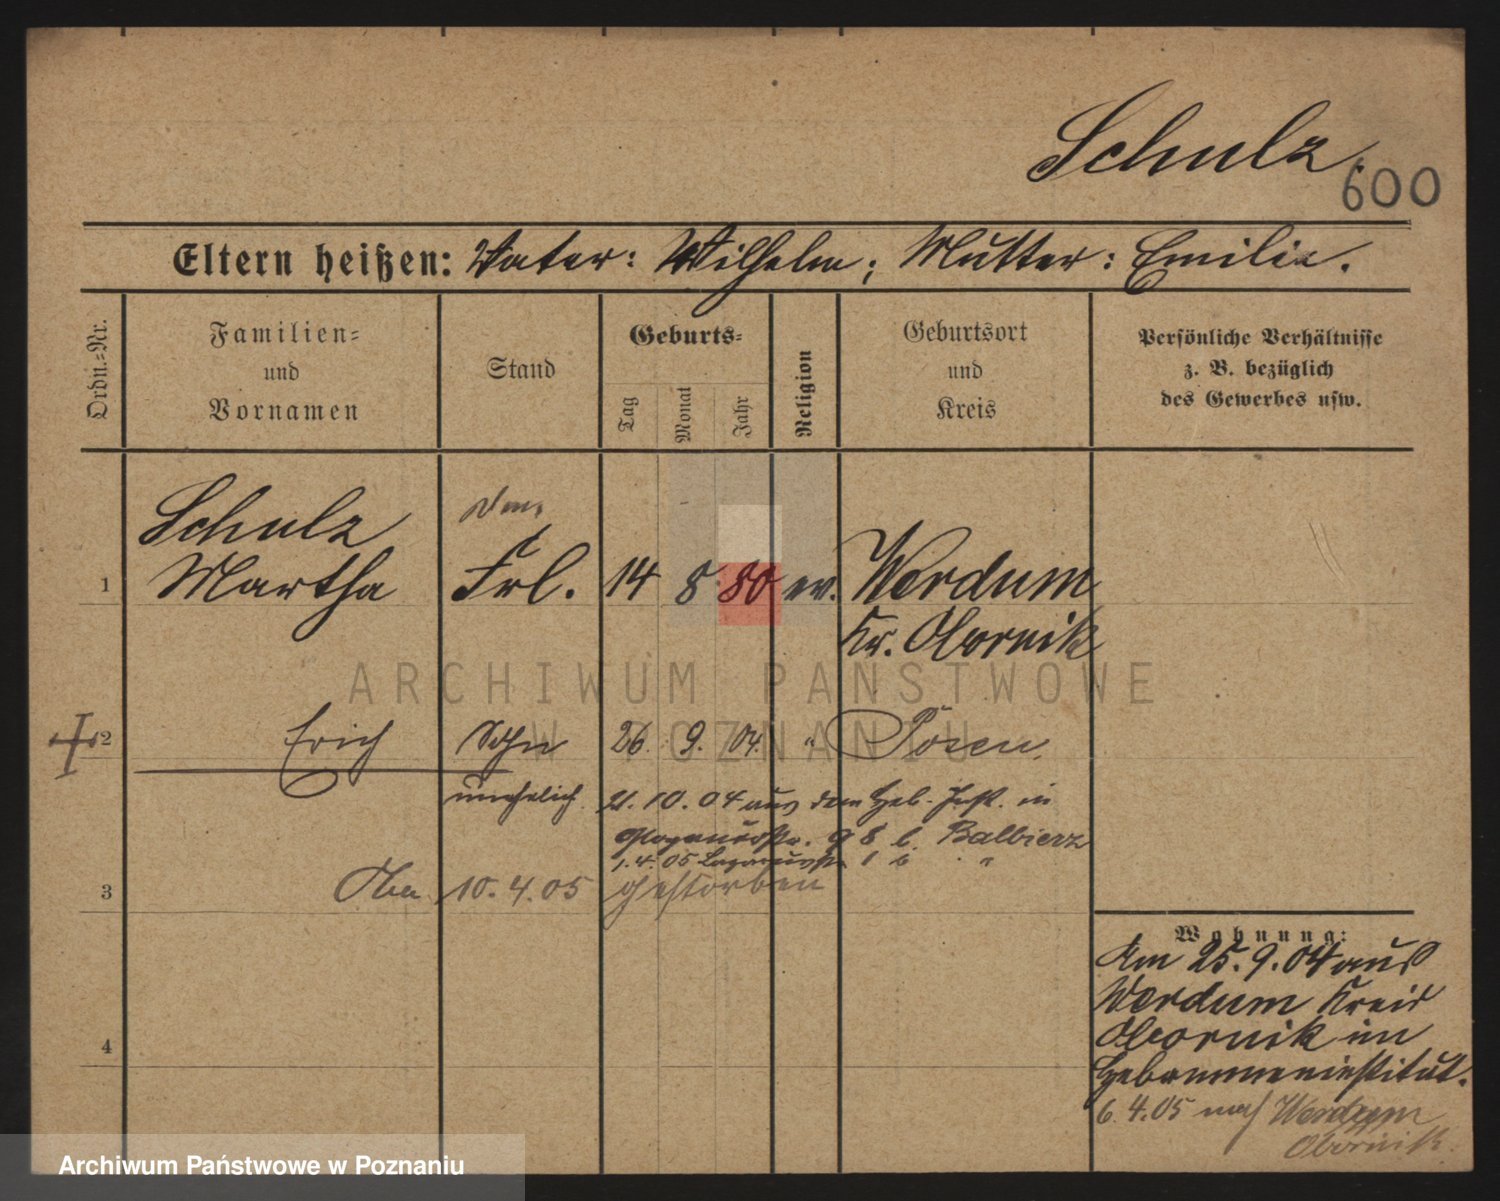 Schulz
600
Eltern heißen: Vater: Wilhelm; Mutter: Emilie.
Ordn.=Nr.
Familien=
und
Vornamen
Stand
Geburts=
Tag
Monat
Jahr
Religion
Geburtsort
und
Kreis
Persönliche Verhältnisse
z. B. bezüglich
des Gewerbes usw.
Schulz
1 Martha Frl. 14 8 80 ev. Werdum
Kr. Obornik
2 Erich Sohn 26. 9. 04. " Posen.
unehelich. 21. 10. 04 aus dem Heb. Inst. in
98 b. Balbierz
1. 4. 05 1 b "
3 10. 4. 05 gestorben
Wohnung:
Am 25. 9. 04 aus
Werdum Kreis
Obornik im
4
Hebammeninstitut.
6. 4. 05 nach Werdum
Obornik.
ARCHIWUM PAŃSTWOWE
W POZNANIU
Archiwum Państwowe w Poznaniu